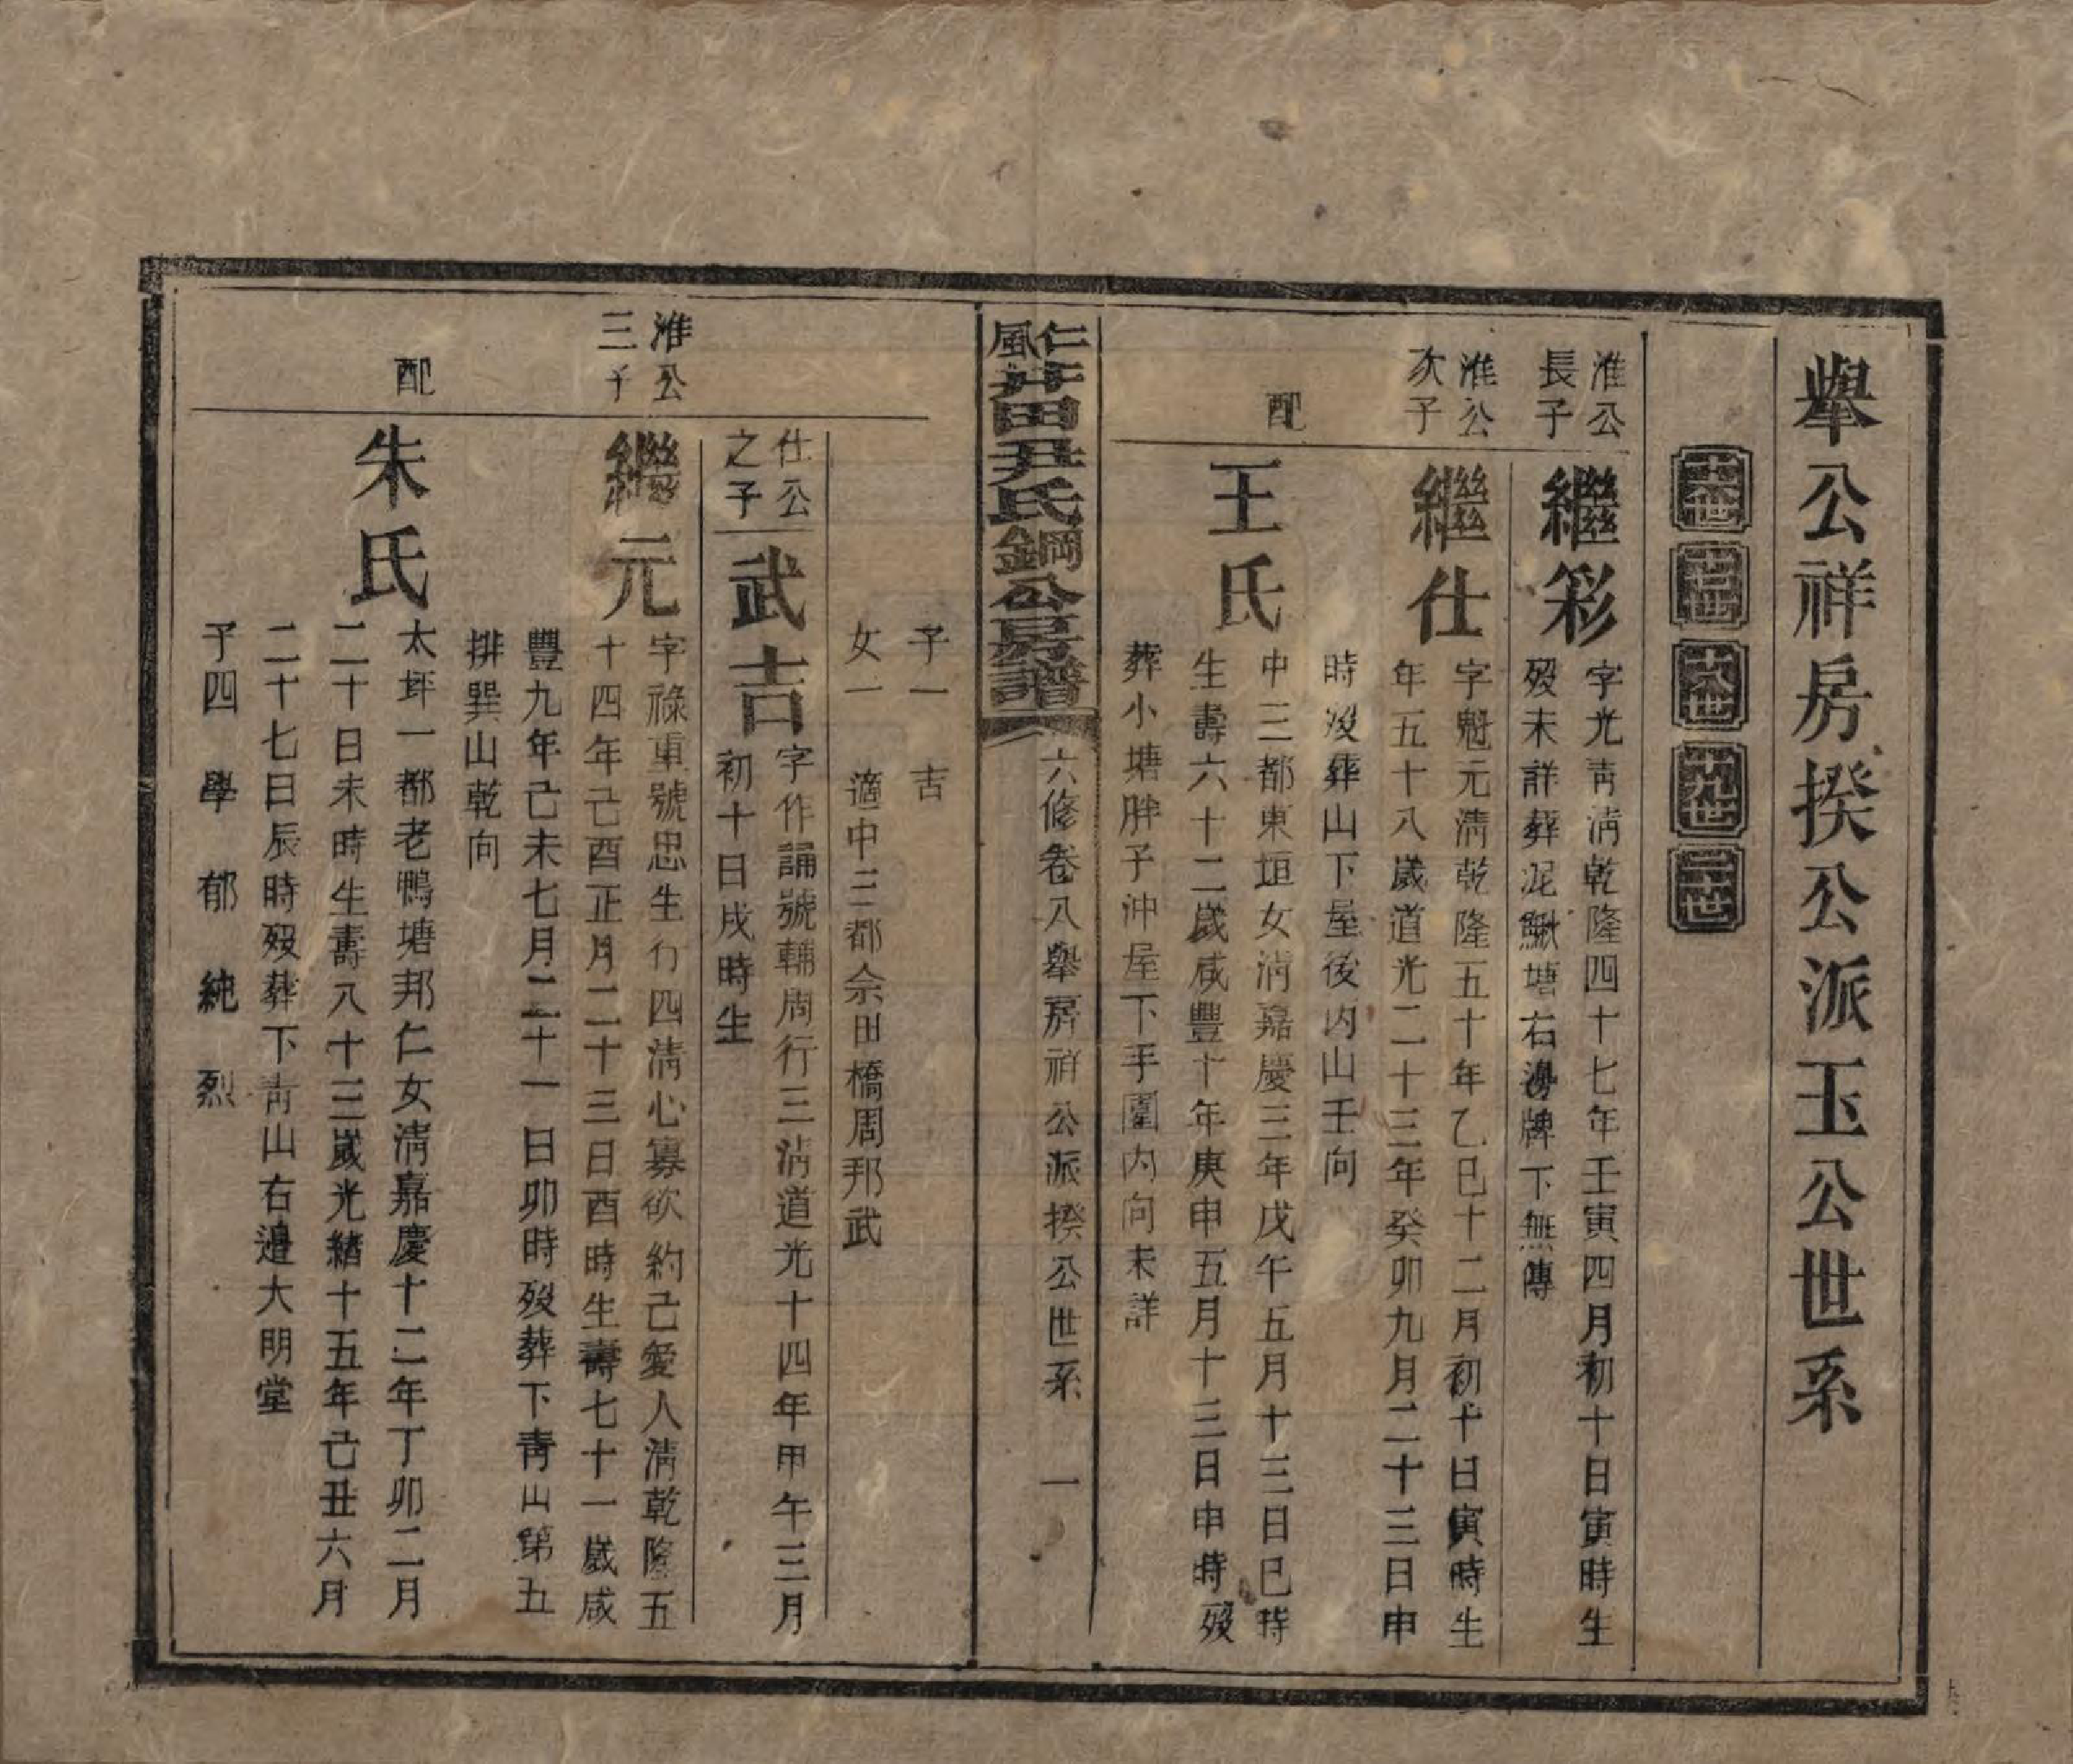 舉公祥房揆公派玉公世系
十六世 十七世 十八世 十九世 二十世
淮公長子
繼彩
字光靑淸乾隆四十七年壬寅四月初十日寅時生
歿未詳葬泥鰍塘右邊牌下無傳
淮公次子
繼仕
字魁元淸乾隆五十年乙巳十二月初十日寅時生
年五十八歲道光二十三年癸卯九月二十三日申
時歿葬山下屋後內山壬向
配
王氏
中三都東垣女淸嘉慶三年戊午五月十三日巳時
生壽六十二歲咸豐十年庚申五月十三日申時歿
葬小塘胖子沖屋下手園內向未詳
仁風井田尹氏鋼公房譜
六修卷八舉房祥公派揆公世系 一
子一 吉
女一 適中三都佘田橋周邦武
仕公之子
武吉
字作誦號輔周行三淸道光十四年甲午三月
初十日戌時生
淮公三子
繼元
字祿重號思生行四淸心寡欲約己愛人淸乾隆五
十四年己酉正月二十三日酉時生壽七十一歲咸
豐九年己未七月二十一日卯時歿葬下靑山第五
排巽山乾向
配
朱氏
太坪一都老鴨塘邦仁女淸嘉慶十二年丁卯二月
二十日未時生壽八十三歲光緒十五年己丑六月
二十七日辰時歿葬下靑山右邊大明堂
子四 學 郁 純 烈